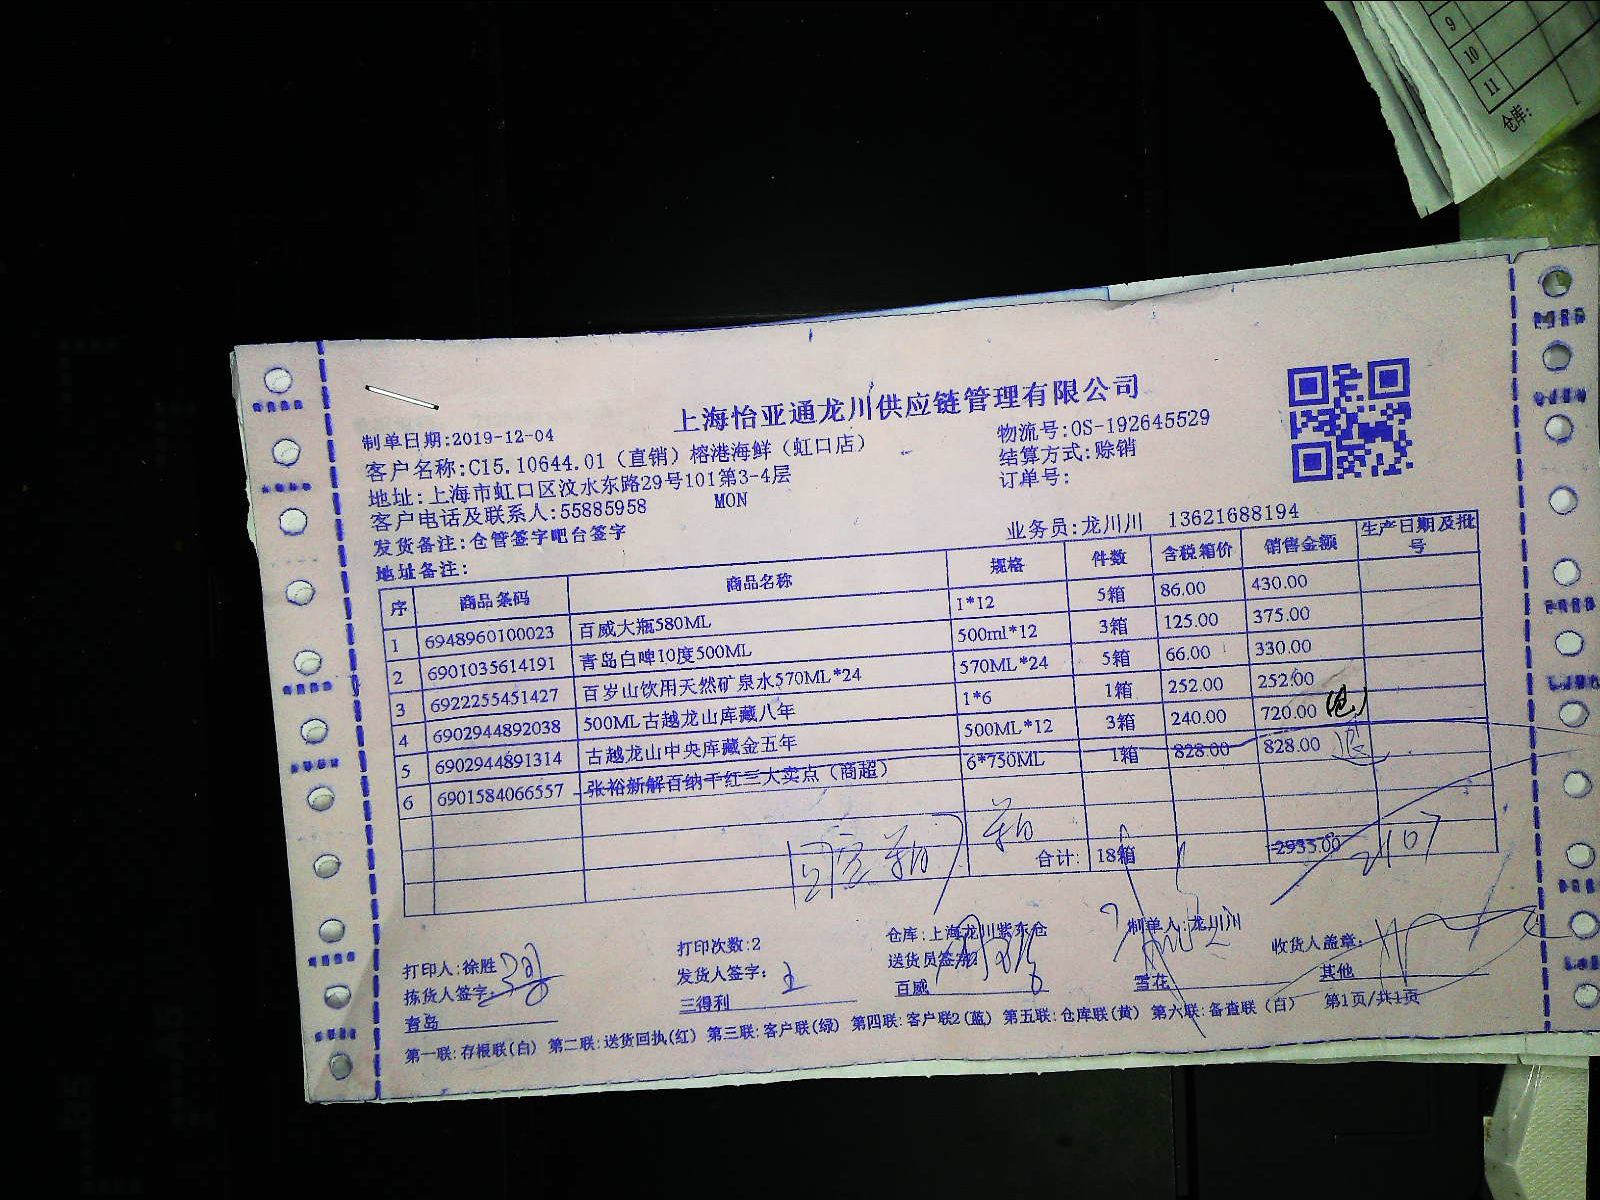 9
10
11
仓库:
上海怡亚通龙川供应链管理有限公司
制单日期:2019-12-04
物流号:OS-192645529
客户名称:C15.10644.01（直销）榕港海鲜（虹口店）
结算方式:赊销
地址:上海市虹口区汶水东路29号101第3-4层
订单号:
客户电话及联系人:55885958 MON
发货备注:仓管签字吧台签字
业务员:龙川川 13621688194
地址备注:
序 商品条码 商品名称 规格 件数 含税箱价 销售金额 生产日期及批号
1 6948960100023 百威大瓶580ML 1*12 5箱 86.00 430.00
2 6901035614191 青岛白啤10度500ML 500ml*12 3箱 125.00 375.00
3 6922255451427 百岁山饮用天然矿泉水570ML*24 570ML*24 5箱 66.00 330.00
4 6902944892038 500ML古越龙山库藏八年 1*6 1箱 252.00 252.00
5 6902944891314 古越龙山中央库藏金五年 500ML*12 3箱 240.00 720.00
6 6901584066557 张裕新解百纳干红三大卖点（商超） 6*750ML 1箱 828.00 828.00
合计: 18箱 2935.00
2107
打印人:徐胜 打印次数:2 仓库:上海龙川紫东仓 制单人:龙川川 收货人盖章:
拣货人签字: 发货人签字: 送货员签字:
青岛 三得利 百威 雪花 其他
第一联:存根联(白) 第二联:送货回执(红) 第三联:客户联(绿) 第四联:客户联2(蓝) 第五联:仓库联(黄) 第六联:备查联（白） 第1页/共1页